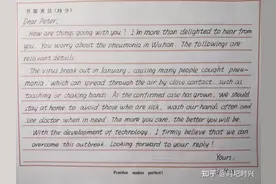 书面表达(25分)
Dear Peter,
How are things going with you! I'm more than delighted to hear from
you. You worry about the pneumonia in Wuhan. The followings are
relevant details.
The virus break out in January, causing many people caught pneu-
monia, which can spread through the air by close contact, such as
touching or shaking hands. As the confirmed case has grown, we should
stay at home to avoid those who are sick, wash our hands often and
see doctor when in need. The more you care, the better you will be.
With the development of technology, I firmly believe that we can
overcome this outbreak. Looking forward to your reply!
Yours,
Practice makes perfect!
知乎